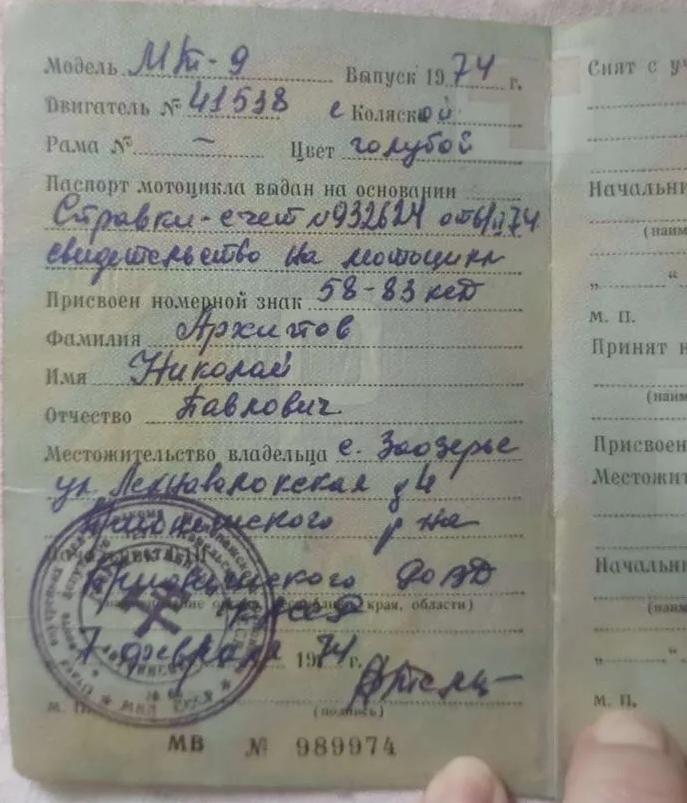 Модель МТ-9 Выпуск 1974 г.
Двигатель № 41538 с Коляской
Рама № – Цвет голубой
Паспорт мотоцикла выдан на основании
Справки-счет №932624 от
свидетельство на мотоцикл
Присвоен номерной знак 58-83
Фамилия Архипов
Имя Николай
Отчество Павлович
Местожительство владельца с. Заозерье
ул.
р-на
РОВД
(наименование республики, края, области)
7 февраля 1974 г.
М. П. (подпись)
МВ № 989974
Снят с уч
Начальни
(наим
„ “
М. П.
Принят н
(наим
Присвоен
Местожит
Начальни
(наим
„ “
М. П.